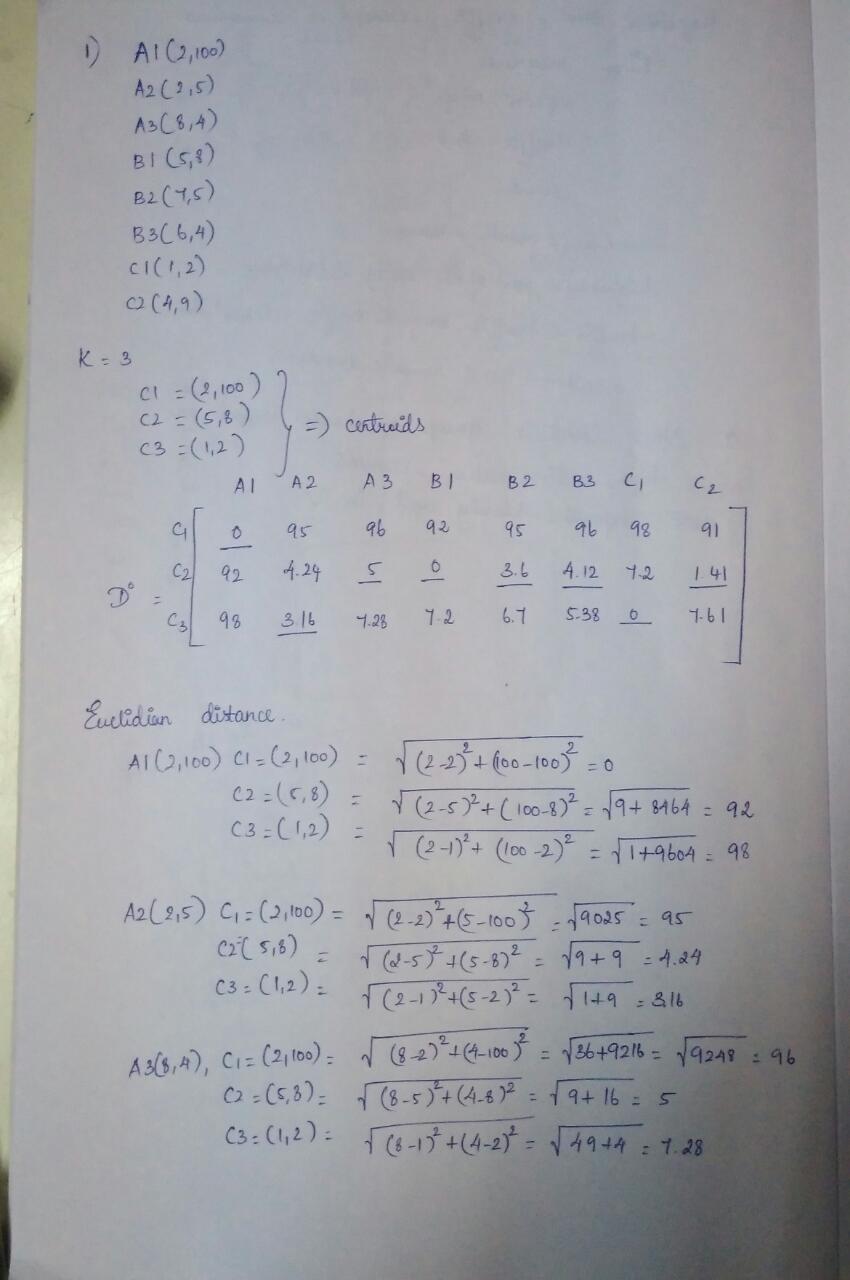 1) A1(2,100)
A2(2,5)
A3(8,4)
B1(5,8)
B2(7,5)
B3(6,4)
C1(1,2)
C2(4,9)
K = 3
C1 = (2,100)
C2 = (5,8) => centroids
C3 = (1,2)
A1 A2 A3 B1 B2 B3 C1 C2
C1 0 95 96 92 95 96 98 91
C2 92 4.24 5 0 3.6 4.12 7.2 1.41
D⁰ =
C3 98 3.16 7.28 7.2 6.7 5.38 0 7.61
Euclidian distance.
A1(2,100) C1 = (2,100) = √(2-2)²+(100-100)² = 0
C2 = (5,8) = √(2-5)²+(100-8)² = √9+8464 = 92
C3 = (1,2) = √(2-1)²+(100-2)² = √1+9604 = 98
A2(2,5) C1 = (2,100) = √(2-2)²+(5-100)² = √9025 = 95
C2=(5,8) = √(2-5)²+(5-8)² = √9+9 = 4.24
C3 = (1,2) = √(2-1)²+(5-2)² = √1+9 = 3.16
A3(8,4), C1 = (2,100) = √(8-2)²+(4-100)² = √36+9216 = √9248 = 96
C2 = (5,8) = √(8-5)²+(4-8)² = √9+16 = 5
C3 = (1,2) = √(8-1)²+(4-2)² = √49+4 = 7.28